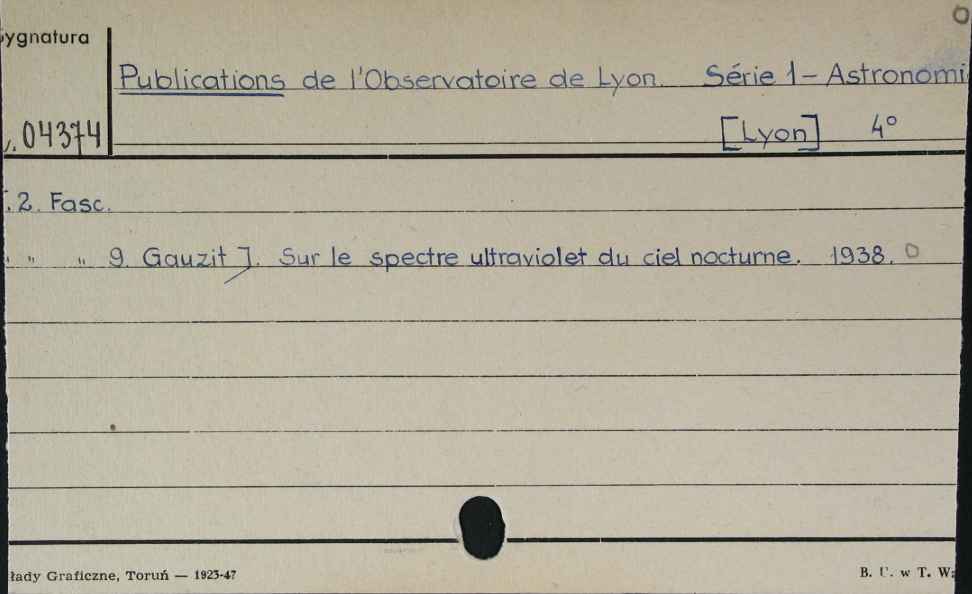 ygnatura
Publications de l'Observatoire de Lyon. Série 1 - Astronomi
04374
[Lyon] 4°
.2. Fasc.
" " 9. Gauzit J. Sur le spectre ultraviolet du ciel nocturne. 1938.
łady Graficzne, Toruń — 1923-47
B. U. w T. W.